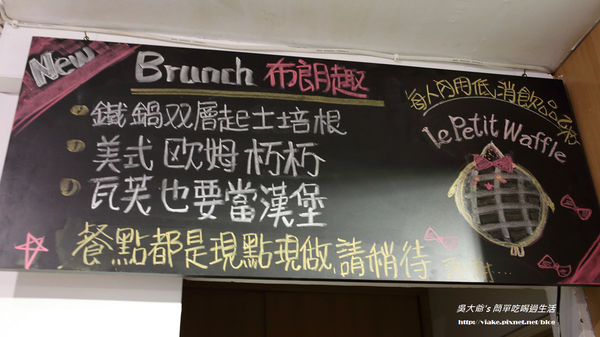 New
Brunch 布朗趣
鐵鍋双層起士培根
美式欧姆朽朽
瓦芙也要當漢堡
餐點都是現點現做,請稍待
每人內用低消飲品乙杯
le Petit Waffle
吳大爺's 簡單吃喝過生活
http://viake.pixnet.net/blog